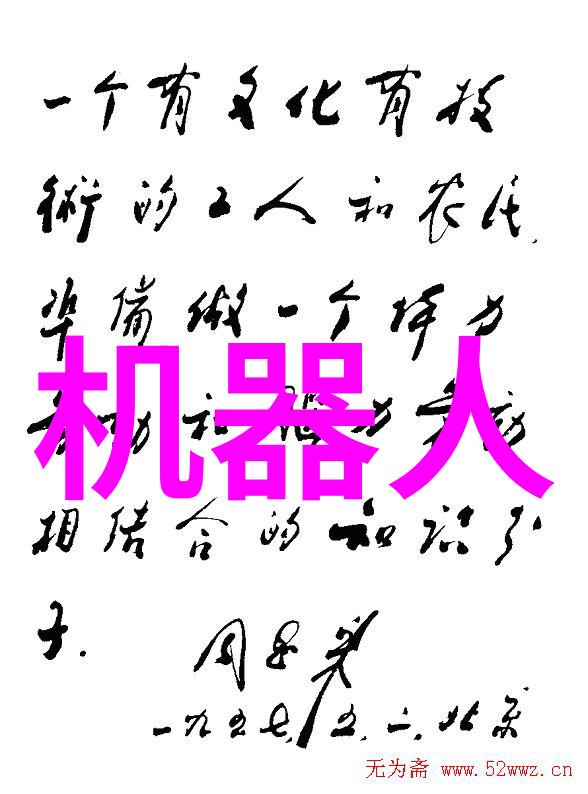 一个有文化有技
術的工人和农民,
準備做一个体力
劳动和脑力劳动
机器人
相结合的知识分
子.
周恩来
一九五七,五.一.北京
无为斋 www.52wwz.cn